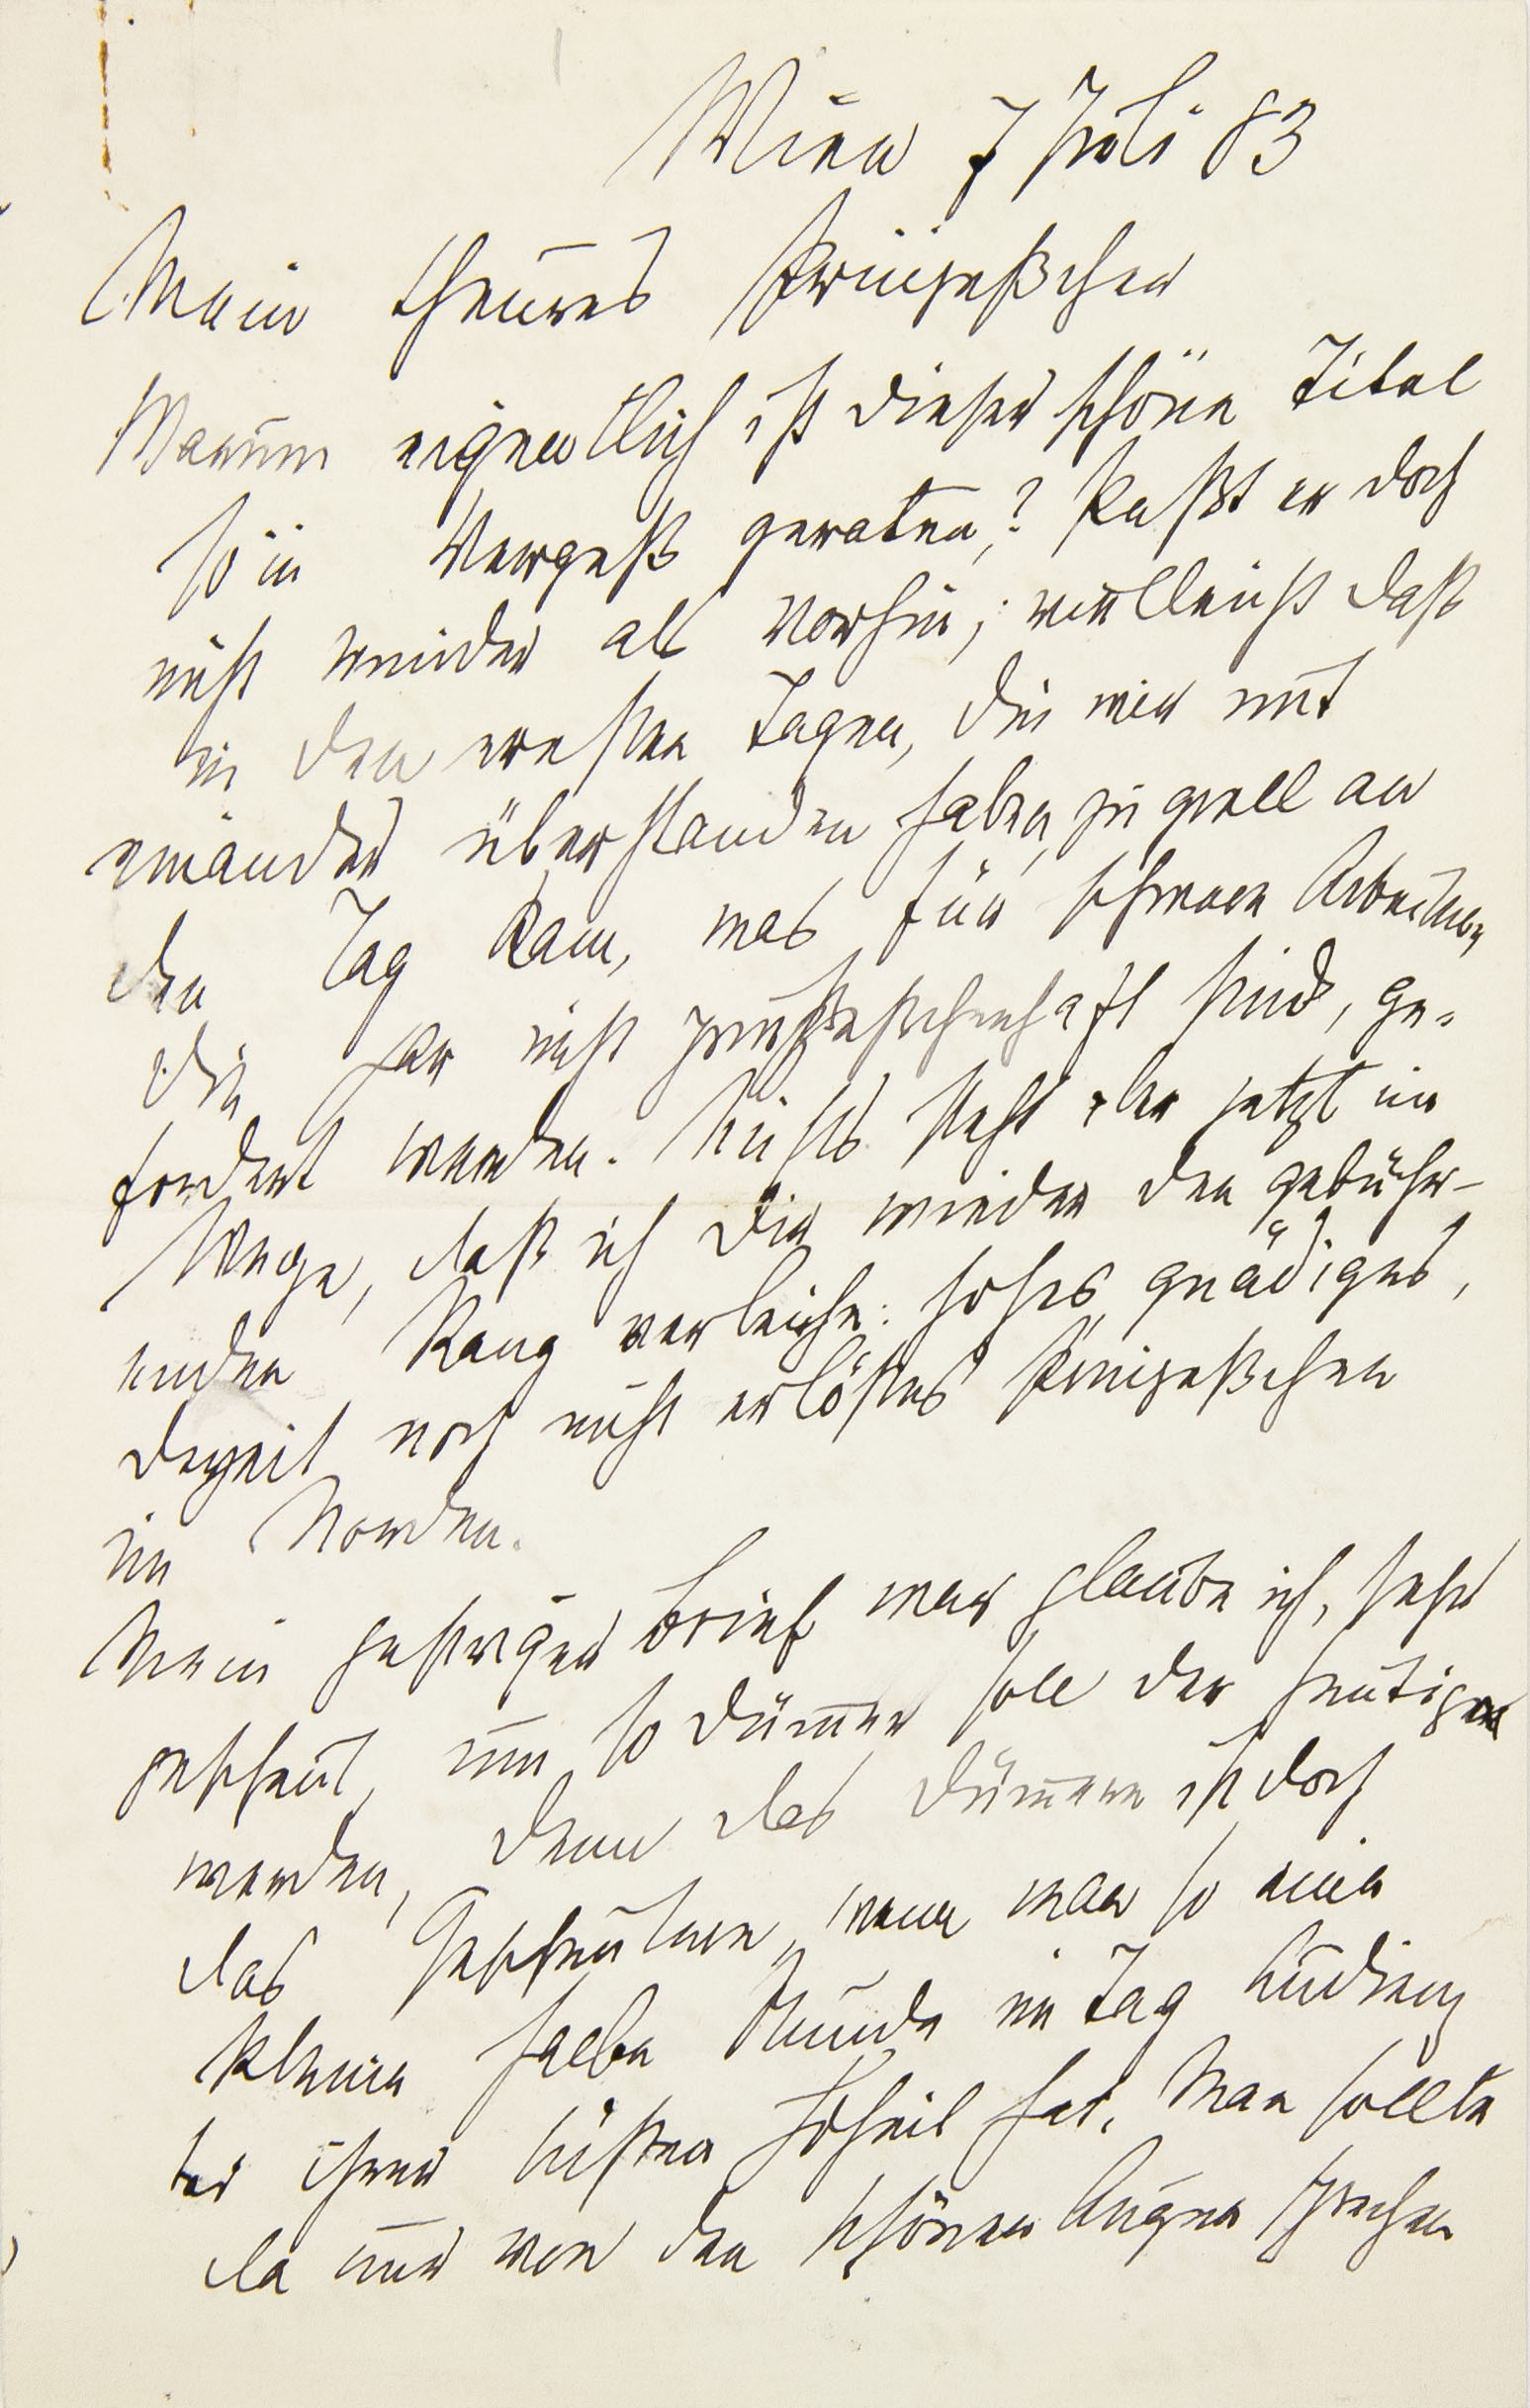 Wien 7 Juli 83
Mein theures Prinzeßchen
Warum eigentlich ist dieser schöne Titel
so in Vergeß geraten? Paßt er doch
nicht minder als vorhin; vielleicht daß
in den ersten Tagen, die wir mit
einander überstanden haben, zu grell an
den Tag kam, was für schwere Arbeiten,
die gar nicht prinzeßchenhaft sind, ge-
fordert werden. Nichts steht aber jetzt im
Wege, daß ich Dir wieder den gebühr-
enden Rang verleihe: hohes, gnädiges,
derzeit noch nicht erlöstes Prinzeßchen
im Norden.
Mein gestriger Brief war glaube ich, sehr
gescheut, um so dümer soll der heutige
werden, denn das Dümere ist doch
das Gescheutere, wenn man so eine
kleine halbe Stunde im Tag Audienz
bei ihrer süßen Hoheit hat. Man sollte
da nur von den schönen Augen sprechen